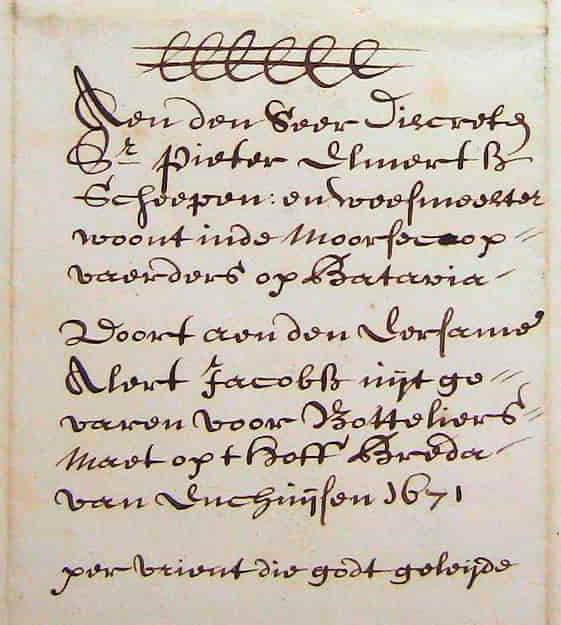 Aen den Seer Discreten
Sr. Pieter Elmertsz
Scheepen: en weesmeester
woont inde Moorse coop=
vaerders op Batavia-
Voort aen den Eersame
Alert Jacobsz uijt ge=
varen voor Botteliers=
Maet op t Hoff Breda-
van Enchuijsen 1671
per vrient die godt geleijde